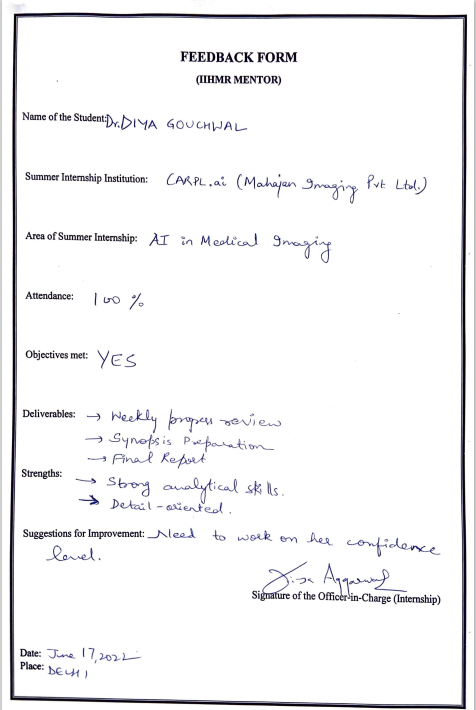 FEEDBACK FORM
(IIHMR MENTOR)
Name of the Student: Dr. DIYA GOUCHWAL
Summer Internship Institution: CARPL.ai (Mahajan Imaging Pvt Ltd.)
Area of Summer Internship: AI in Medical Imaging
Attendance: 100 %
Objectives met: YES
Deliverables: → Weekly progress review
→ Synopsis Preparation
→ Final Report
Strengths:
→ Strong analytical skills.
→ Detail-oriented.
Suggestions for Improvement: Need to work on her confidence
level.
Aggarwal
Signature of the Officer-in-Charge (Internship)
Date: June 17, 2022
Place: DELHI